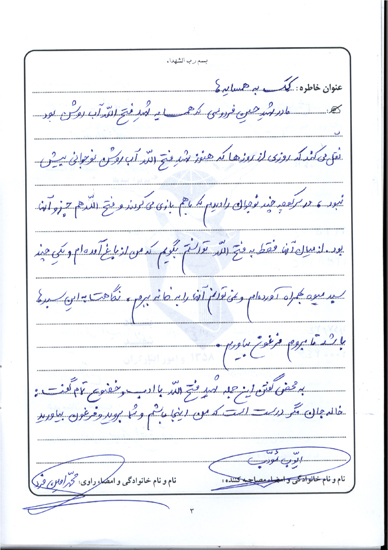 بسم رب الشهداء
عنوان خاطره: کمک به همسایه ها
مادر شهید حسین فردوسی که همسایه شهید فتح الله آب روشن بود
نقل می کند که روزی از روزها که هنوز شهید فتح الله آب روشن نوجوانی بیش
نبود، در سر کوچه چند نوجوان را دیدم که باهم بازی می کردند و فتح الله هم جزو آنها
بود. از میان آنها فقط به فتح الله توانستم بگویم که من از باغ آمده ام و یکی چند
سبد میوه بهمراه آورده ام و نمی توانم آنها را به خانه ببرم، نگاهت به این سبدها
باشد تا بروم فرغون بیاورم.
به محض گفتن این جمله شهید فتح الله با ادب و خضوع تمام گفت:
خاله جان مگر درست است که من اینجا باشم و شما بروید و فرغون بیاورید
نام و نام خانوادگی و امضاء مصاحبه کننده: ایوب
نام و نام خانوادگی و امضاء راوی:
۳